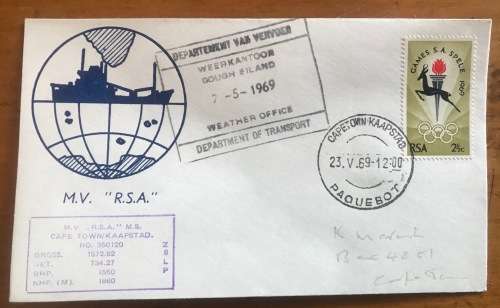 DEPARTEMENT VAN VERVOER
WEERKANTOOR
GOUGH EILAND
7-5-1969
WEATHER OFFICE
DEPARTMENT OF TRANSPORT
GAMES S.A. SPELE 1969
RSA 2½c
CAPE TOWN-KAAPSTAD
23.V.69-12 00
PAQUEBOT
M.V. "R.S.A."
M.V. "R.S.A." M.S.
CAPE TOWN/KAAPSTAD.
NO. 350120
GROSS. 1572.82
NET. 734.27
BHP. 1560
NHP. (M). 1860
ZSLP
Box